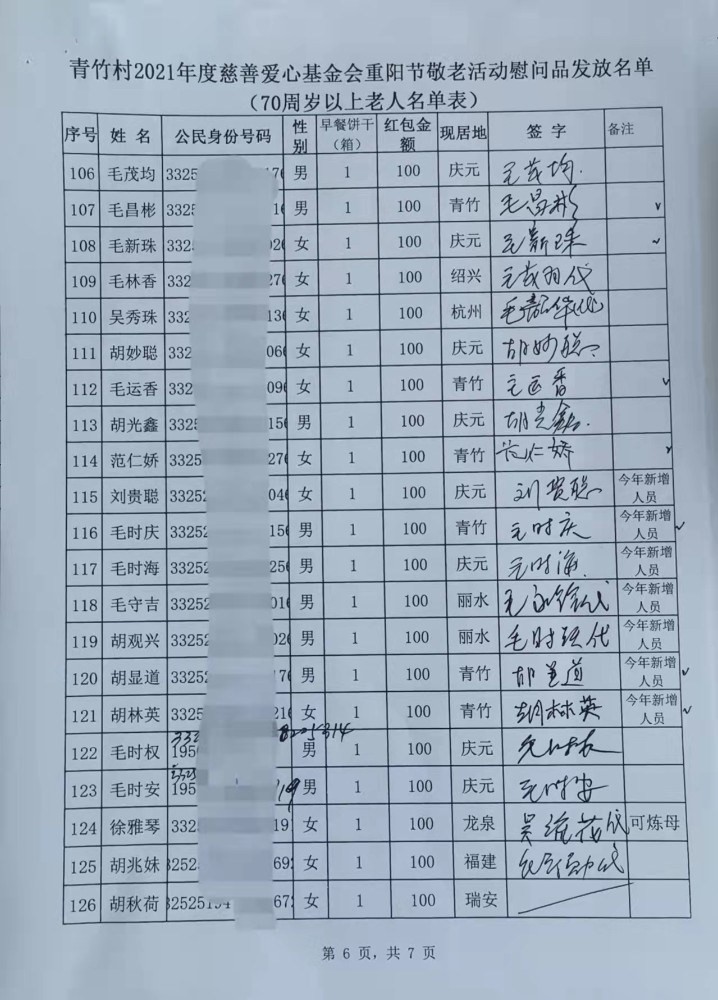 青竹村2021年度慈善爱心基金会重阳节敬老活动慰问品发放名单
（70周岁以上老人名单表）
序号 姓 名 公民身份号码 性别 早餐饼干（箱） 红包金额 现居地 签 字 备注
106 毛茂均 男 1 100 庆元 毛茂均
107 毛昌彬 男 1 100 青竹 毛昌彬
108 毛新珠 女 1 100 庆元 毛新珠
109 毛林香 女 1 100 绍兴
110 吴秀珠 女 1 100 杭州
111 胡妙聪 女 1 100 庆元 胡妙聪
112 毛运香 女 1 100 青竹 毛运香
113 胡光鑫 男 1 100 庆元 胡光鑫
114 范仁娇 女 1 100 青竹 范仁娇
115 刘贵聪 女 1 100 庆元 刘贵聪 今年新增人员
116 毛时庆 男 1 100 青竹 毛时庆 今年新增人员
117 毛时海 男 1 100 庆元 毛时海 今年新增人员
118 毛守吉 男 1 100 丽水 今年新增人员
119 胡观兴 男 1 100 丽水 今年新增人员
120 胡显道 男 1 100 青竹 胡显道 今年新增人员
121 胡林英 女 1 100 青竹 胡林英 今年新增人员
122 毛时权 男 1 100 庆元
123 毛时安 男 1 100 庆元 毛时安
124 徐雅琴 女 1 100 龙泉 可炼母
125 胡兆妹 女 1 100 福建
126 胡秋荷 女 1 100 瑞安
第 6 页，共 7 页